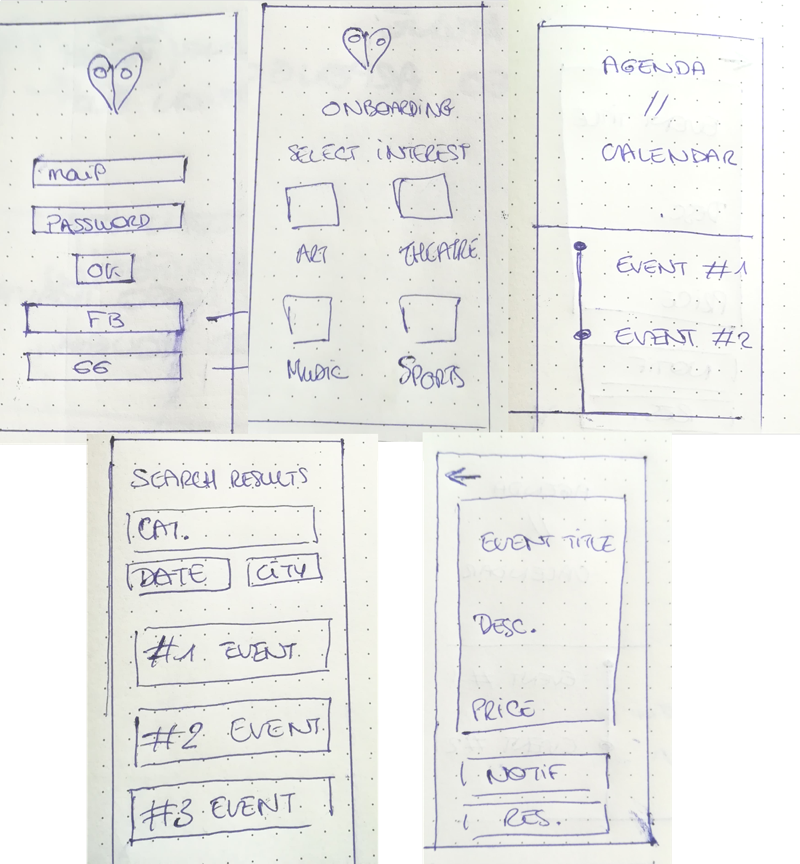 maiP
PASSWORD
OK
FB
GG
ONBOARDING
SELECT INTEREST
ART
THEATRE
MUSIC
SPORTS
AGENDA
//
CALENDAR
EVENT #1
EVENT #2
SEARCH RESULTS
CAT.
DATE
CITY
#1 EVENT
#2 EVENT
#3 EVENT
←
EVENT TITLE
DESC.
PRICE
NOTIF
RES.